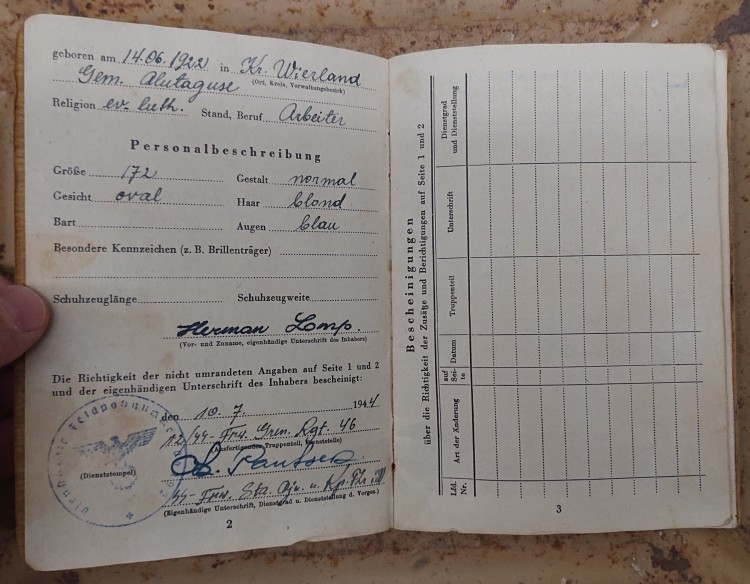 geboren am 14.06.1922 in Kr. Wierland
Gem. Alutaguse (Ort, Kreis, Verwaltungsbezirk)
Religion ev. luth. Stand, Beruf Arbeiter
Personalbeschreibung
Größe 172 Gestalt normal
Gesicht oval Haar blond
Bart Augen blau
Besondere Kennzeichen (z. B. Brillenträger)
Schuhzeuglänge Schuhzeugweite
Herman Lomp.
(Vor- und Zuname, eigenhändige Unterschrift des Inhabers)
Die Richtigkeit der nicht umrandeten Angaben auf Seite 1 und 2
und der eigenhändigen Unterschrift des Inhabers bescheinigt:
den 10. 7. 1944
12./SS-Frw. Gren. Rgt. 46
(Ausfertigender Truppenteil, Dienststelle)
(Dienststempel)
SS-Frw. Sta. Oju. u. Kp.
(Eigenhändige Unterschrift, Dienstgrad u. Dienststellung d. Vorges.)
2
Bescheinigungen
über die Richtigkeit der Zusätze und Berichtigungen auf Seite 1 und 2
Lfd. Nr.
Art der Änderung
auf Sei-te
Datum
Truppenteil
Unterschrift
Dienstgrad
und Dienststellung
3